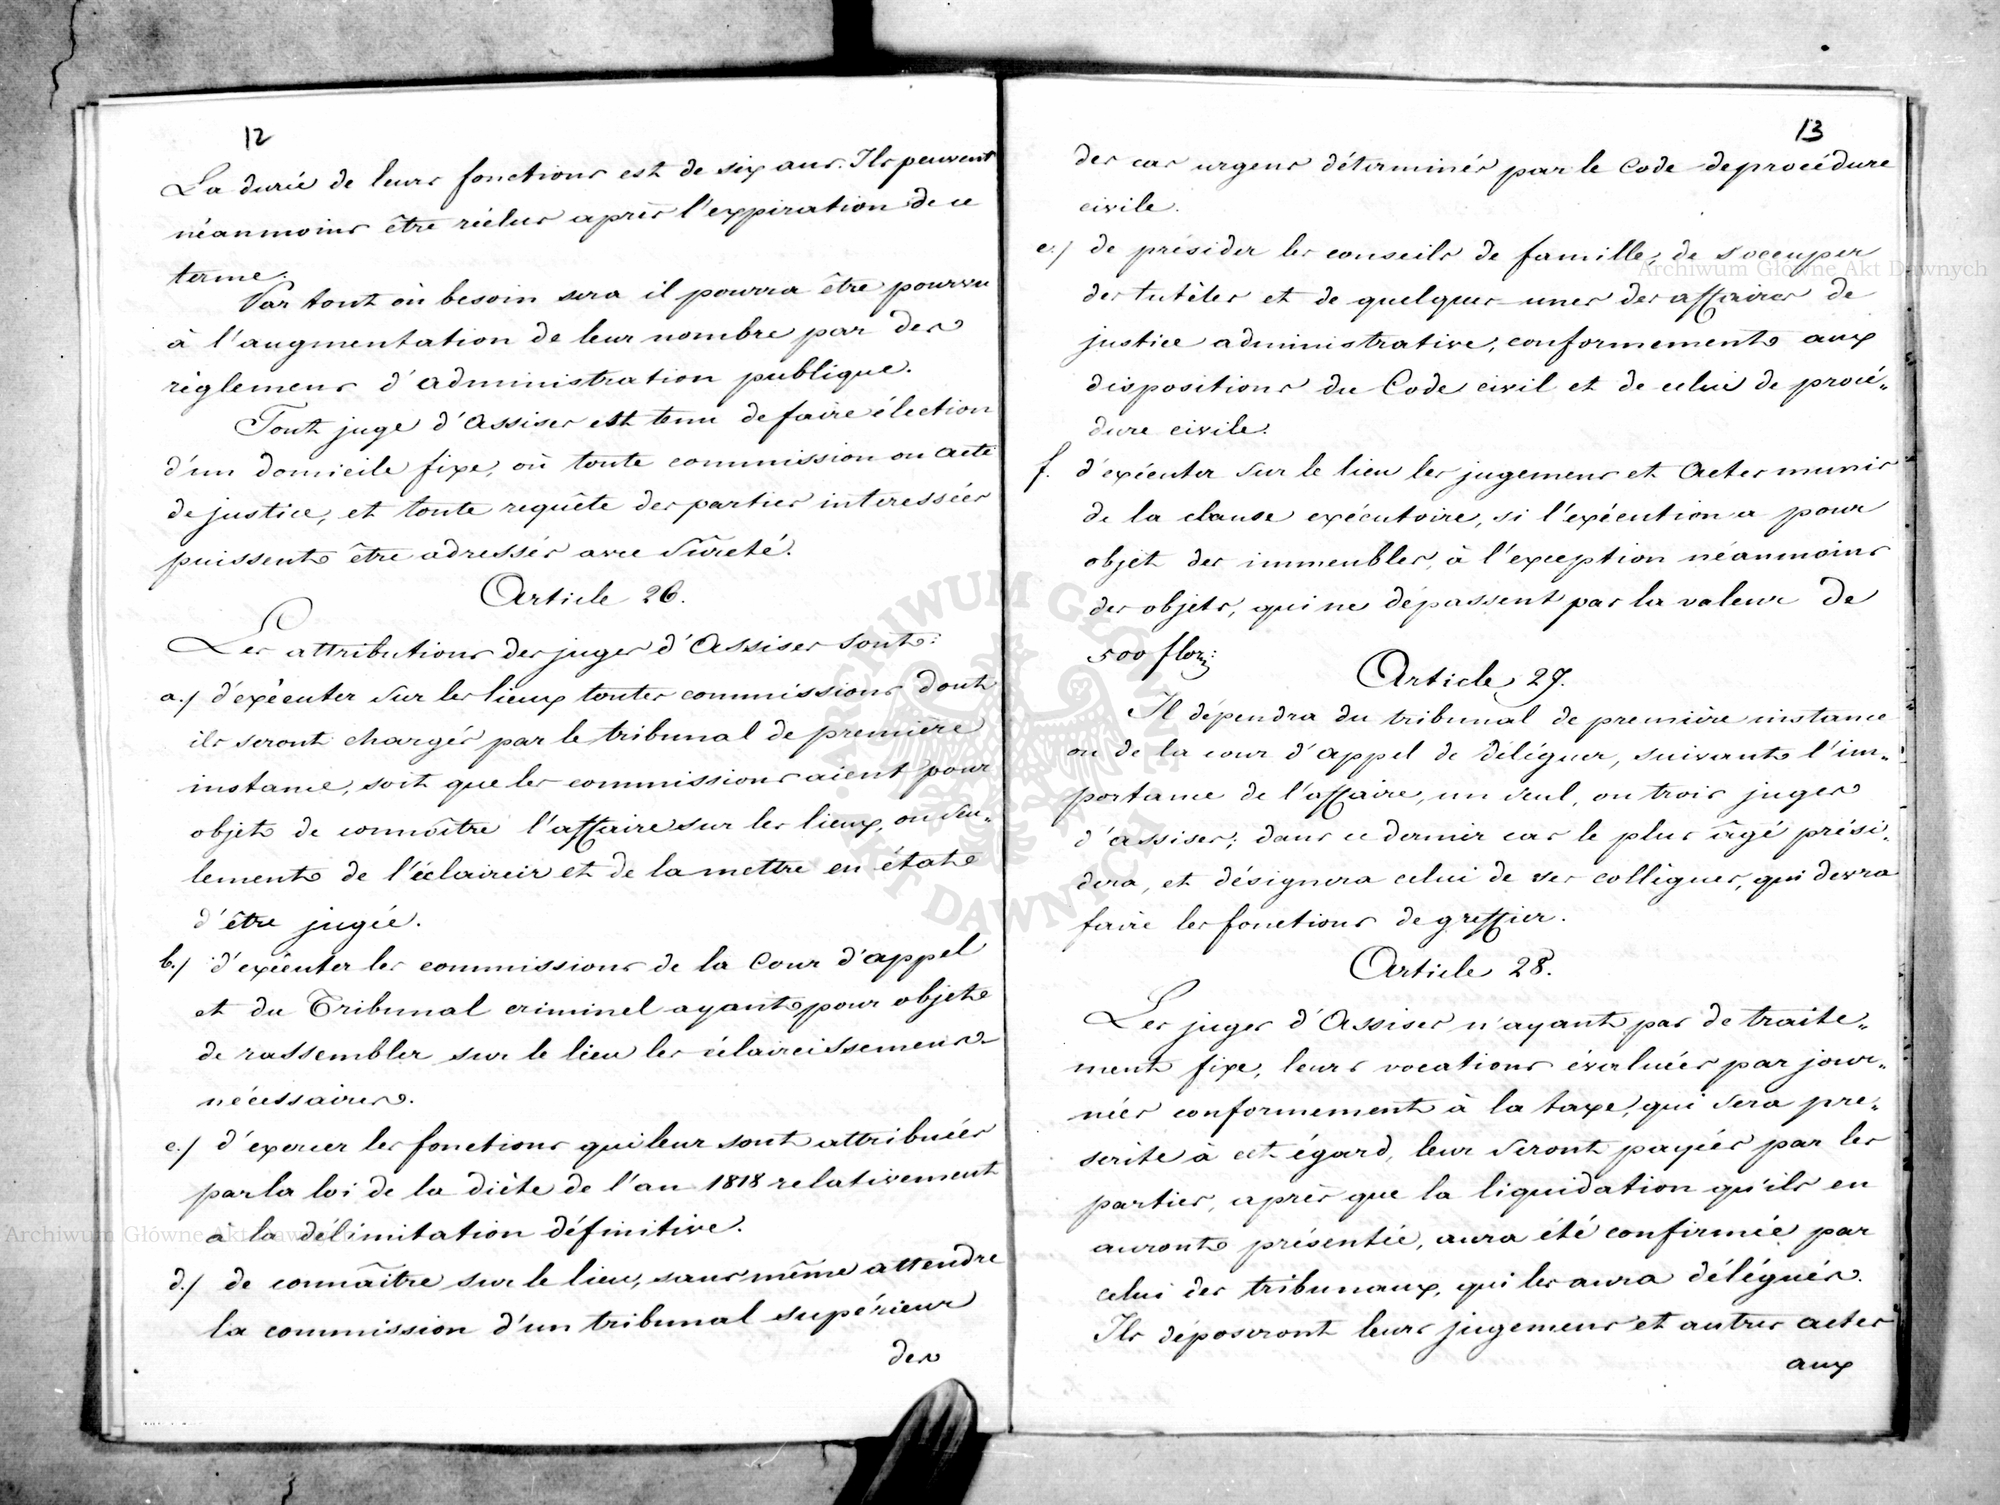 12
La durée de leurs fonctions est de six ans. Ils peuvent
néanmoins être réélus après l'expiration de ce
terme.
Par tout où besoin sera il pourra être pourvu
à l'augmentation de leur nombre par des
règlemens d'administration publique.
Tout juge d'Assises est tenu de faire élection
d'un domicile fixe, où toute commission ou acte
de justice, et toute requête des parties interessées
puissent être adressés avec sûreté.
Article 26.
Les attributions des juges d'Assises sont:
a./ d'exécuter sur les lieux toutes commissions dont
ils seront chargés par le tribunal de premiere
instance, soit que les commissions aient pour
objet de connoître l'affaire sur les lieux, ou seu„
lement de l'éclaircir et de la mettre en état
d'être jugée.
b./ d'exécuter les commissions de la Cour d'appel
et du Tribunal criminel ayant pour objet
de rassembler sur le lieu les éclaircissemens
nécessaires.
c./ d'exercer les fonctions qui leur sont attribuées
par la loi de la diète de l'an 1818 relativement
à la délimitation définitive.
d./ de connaître sur le lieu, sans même attendre
la commission d'un tribunal supérieur
des
13
des cas urgens déterminés par le Code de procédure
civile.
e./ de présider les conseils de famille, de s'occuper
des tutèles et de quelques-unes des affaires de
justice administrative, conformement aux
dispositions du Code civil et de celui de procé„
dure civile.
f. d'exécuter sur le lieu les jugemens et Actes munis
de la clause exécutoire, si l'exécution a pour
objet des immeubles, à l'exception néanmoins
des objets, qui ne dépassent pas la valeur de
500 flor:
Article 27.
Il dépendra du tribunal de première instance
ou de la cour d'appel de déléguer, suivant l'im„
portance de l'affaire, un seul, ou trois juges
d'assises; dans ce dernier cas le plus âgé prési„
dera, et désignera celui de ses collègues, qui devra
faire les fonctions de greffier.
Article 28.
Les juges d'Assises n'ayant pas de traite„
ment fixe, leurs vocations évaluées par jour„
nées conformement à la taxe, qui sera pre„
scrite à cet égard, leur seront payées par les
parties, après que la liquidation qu'ils en
auront présentée, aura été confirmée par
celui des tribunaux, qui les aura délégués.
Ils déposeront leurs jugemens et autres actes
aux
Archiwum Główne Akt Dawnych
Archiwum Główne Akt Dawnych
ARCHIWUM GŁÓWNE AKT DAWNYCH